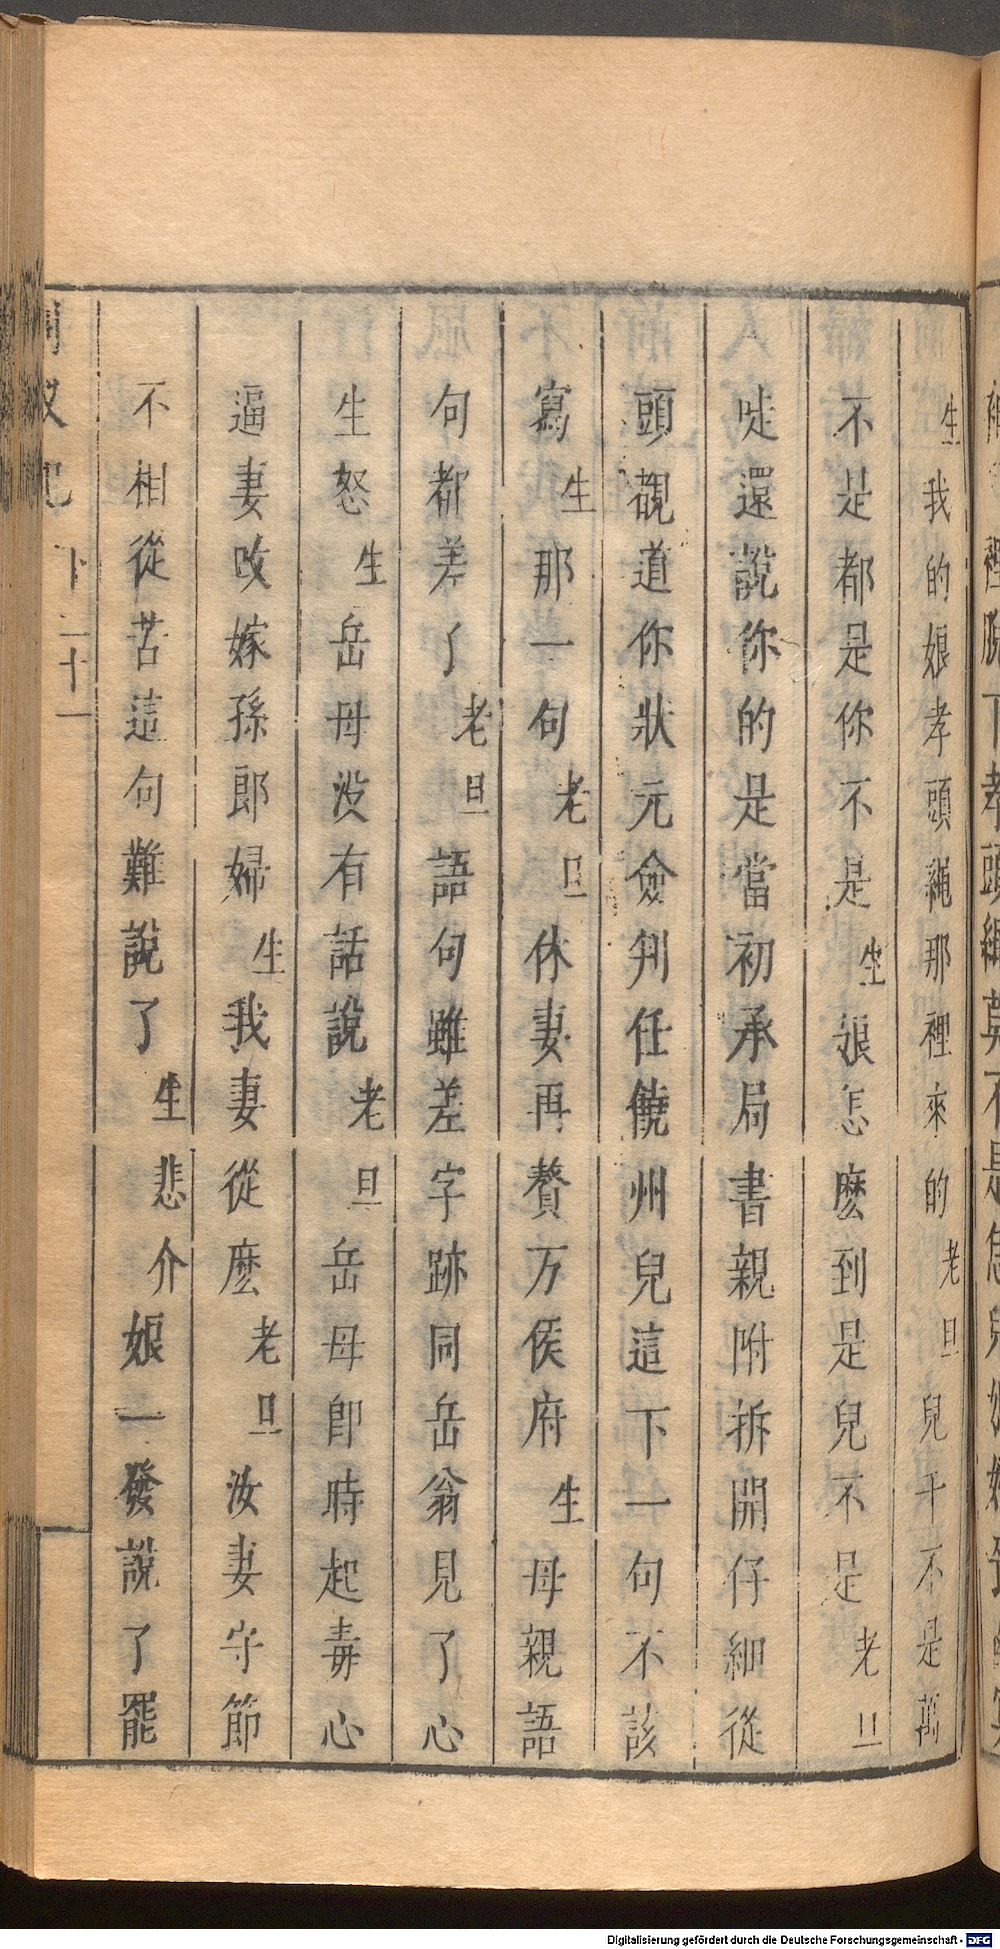 生我的娘孝頭繩那裡來的老旦兒千不是萬
不是都是你不是生娘怎麽到是兒不是老旦
哫還說你的是當初承局書親附拆開仔細從
頭覩道你狀元僉判任饒州兒這下一句不該
寫生那一句老旦休妻再贅万俟府生母親語
句都差了老旦語句雖差字跡同岳翁見了心
生怒生岳母没有話說老旦岳母卽時起毒心
逼妻改嫁孫郎婦生我妻從麽老旦汝妻守節
不相從苦這句難說了生悲介娘一發說了罷
下 二十一
Digitalisierung gefördert durch die Deutsche Forschungsgemeinschaft - DFG